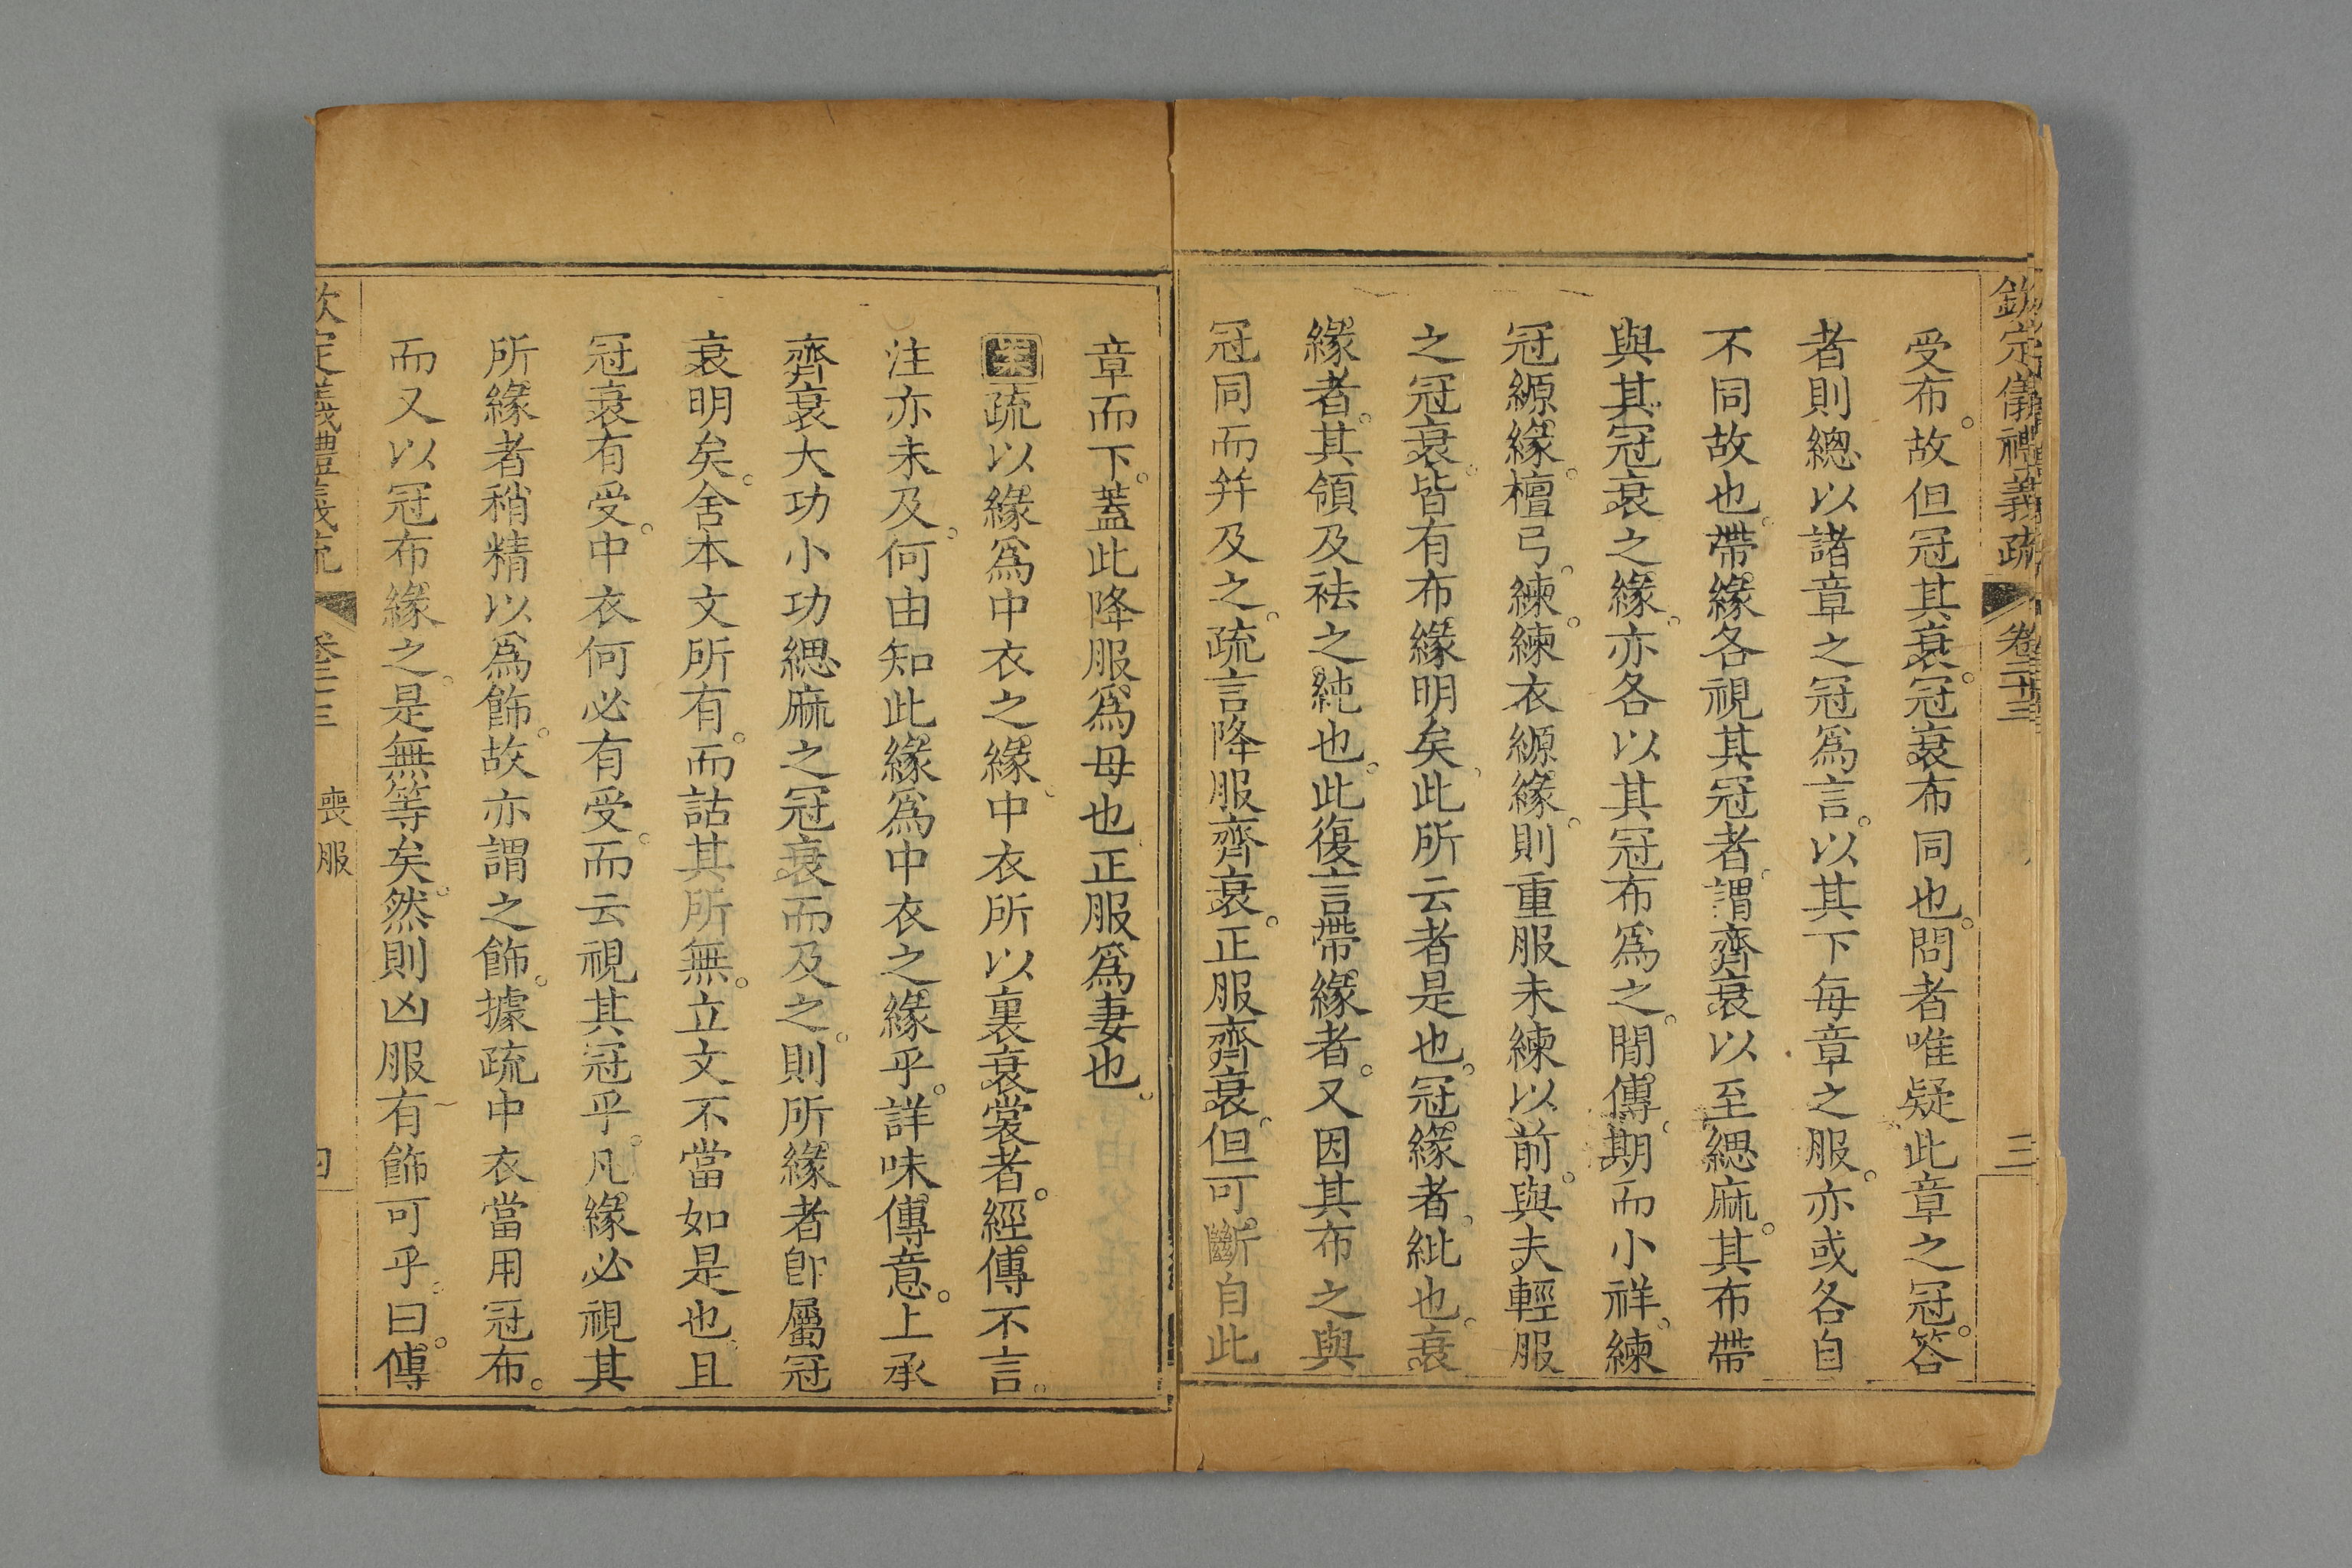 欽定儀禮義疏 卷二十三 三
受布。故但冠其衰。冠衰布同也。問者唯疑此章之冠。答
者則總以諸章之冠爲言。以其下每章之服。亦或各自
不同故也。帶緣各視其冠者。謂齊衰以至緦麻。其布帶
與其冠衰之緣。亦各以其冠布爲之。閒傳。期而小祥。練
冠縓緣。檀弓。練。練衣縓緣。則重服未練以前。與夫輕服
之冠衰。皆有布緣明矣。此所云者是也。冠緣者。紕也。衰
緣者。其領及袪之純也。此復言帶緣者。又因其布之與
冠同而幷及之。疏言降服齊衰。正服齊衰。但可斷自此
章而下。蓋此降服爲母也。正服爲妻也。
疏以緣爲中衣之緣。中衣所以裏衰裳者。經傳不言。
注亦未及。何由知此緣爲中衣之緣乎。詳味傳意。上承
齊衰大功小功緦麻之冠衰而及之。則所緣者卽屬冠
衰明矣。舍本文所有。而詁其所無。立文不當如是也。且
冠衰有受。中衣何必有受。而云視其冠乎。凡緣必視其
所緣者稍精以爲飾。故亦謂之飾。據疏中衣當用冠布。
而又以冠布緣之。是無等矣。然則凶服有飾可乎。曰。傳
欽定儀禮義疏 卷二十三 喪服 四